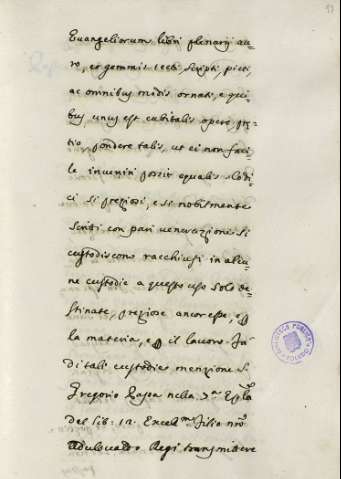 Evangeliorum libri plenarij au-
ro, et gemmis tecti, scripti, picti,
ac omnibus modis ornati, e qui-
bus unus est cubitalis opere, pre-
tio pondere talis, ut ei non faci-
le inveniri possit equalis. Codi-
ci si preziosi, e si nobilmente
scritti con pari venerazione si
custodiscono racchiusi in alcu-
ne custodie a questo uso solo de-
stinate, preziose ancor esse, e p
la materia, e p il lavoro. Fà
di tali custodie menzione S.
Gregorio Papa nella 7.a
del lib: 12. Excell.mo filio nro
Adulouvaldo Regi transmittere
BIBLIOTECA PUBLICA